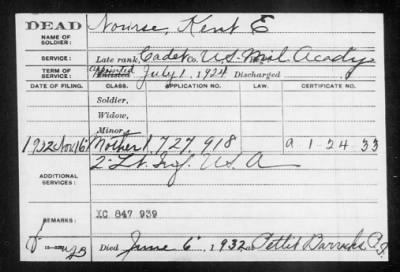 DEAD
NAME OF SOLDIER: Nourse, Kent E
SERVICE: Late rank, Cadet Co. U.S. Mil. Acady
TERM OF SERVICE: Appointed Enlisted July 1, 1924 Discharged
DATE OF FILING. CLASS. APPLICATION NO. LAW. CERTIFICATE NO.
Soldier,
Widow,
Minor,
1932 Nov 16 Mother 1,727,918 a 1-24-33
2" Lt. Inf. U.S.A
ADDITIONAL SERVICES:
REMARKS: XC 847 939
Died June 6, 1932, at Pettit Barracks P.I.